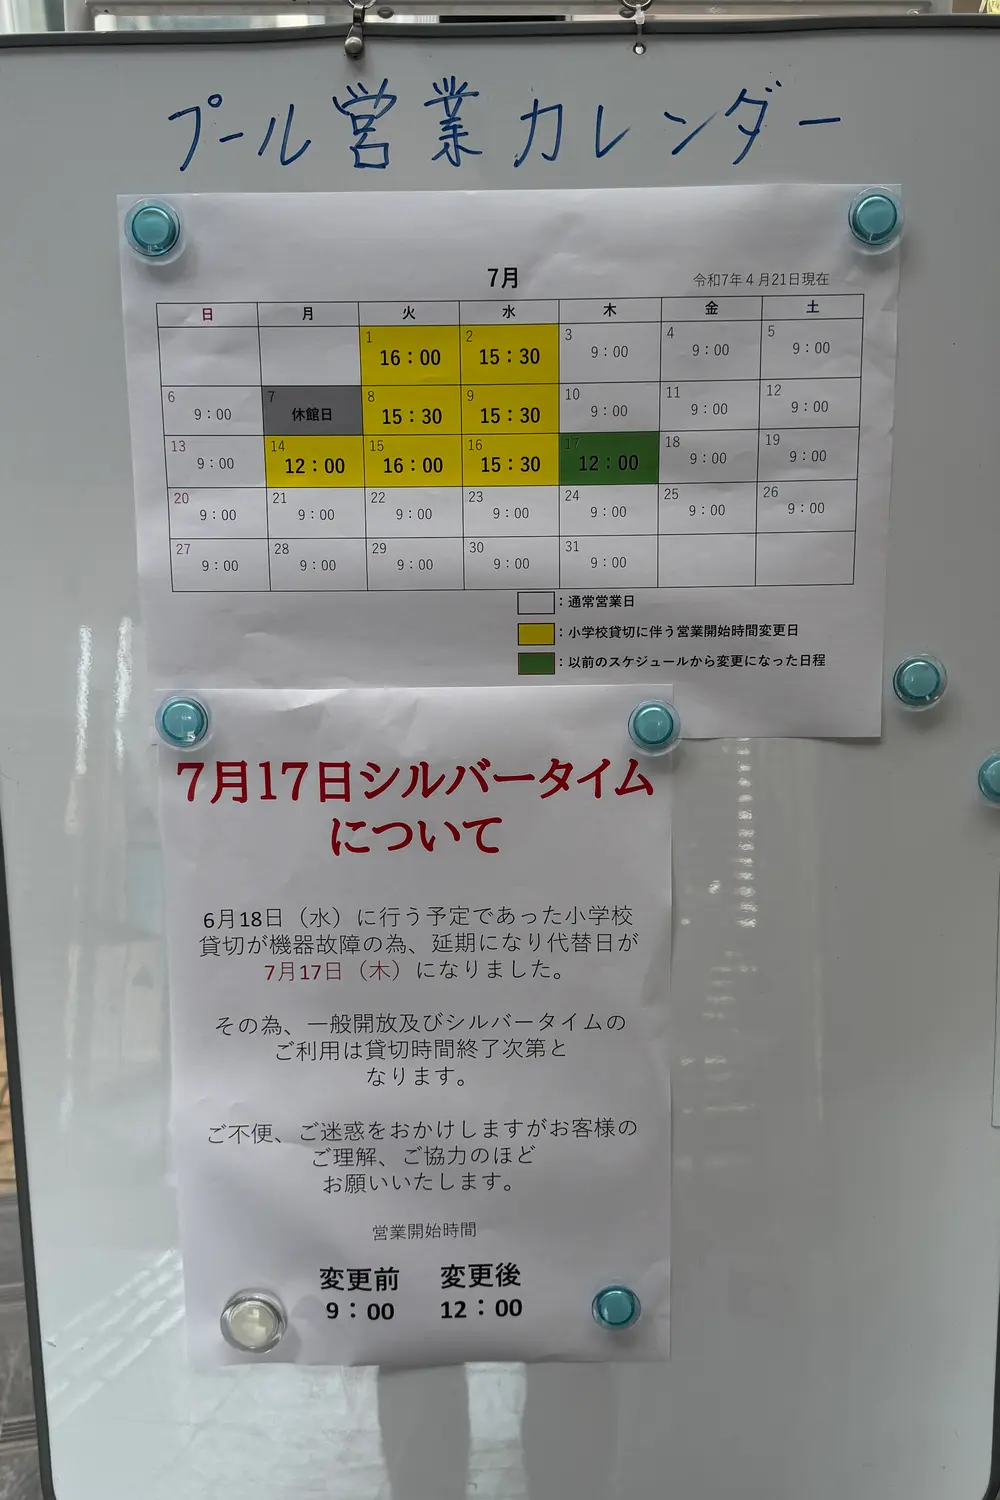 プール営業カレンダー
7月
令和7年4月21日現在
日 月 火 水 木 金 土
1 2 3 4 5
16：00 15：30 9：00 9：00 9：00
6 7 8 9 10 11 12
9：00 休館日 15：30 15：30 9：00 9：00 9：00
13 14 15 16 17 18 19
9：00 12：00 16：00 15：30 12：00 9：00 9：00
20 21 22 23 24 25 26
9：00 9：00 9：00 9：00 9：00 9：00 9：00
27 28 29 30 31
9：00 9：00 9：00 9：00 9：00
：通常営業日
：小学校貸切に伴う営業開始時間変更日
：以前のスケジュールから変更になった日程
7月17日シルバータイム
について
6月18日（水）に行う予定であった小学校
貸切が機器故障の為、延期になり代替日が
7月17日（木）になりました。
その為、一般開放及びシルバータイムの
ご利用は貸切時間終了次第と
なります。
ご不便、ご迷惑をおかけしますがお客様の
ご理解、ご協力のほど
お願いいたします。
営業開始時間
変更前 変更後
9：00 12：00